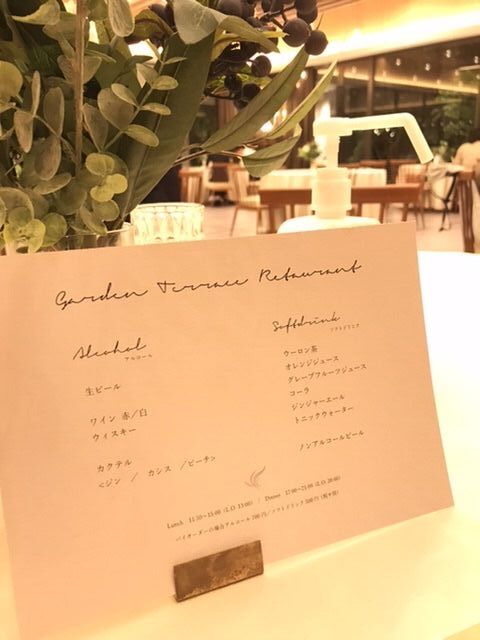 Garden Terrace Retaurant
Alcohol
アルコール
生ビール
ワイン 赤/白
ウィスキー
カクテル
<ジン / カシス /ピーチ>
Softdrink
ソフトドリンク
ウーロン茶
オレンジジュース
グレープフルーツジュース
コーラ
ジンジャーエール
トニックウォーター
ノンアルコールビール
Lunch 11:30~15:00 (L.O. 13:00) / Dinner 17:00~21:00 (L.O. 20:00)
バイオーダーの場合アルコール700円/ソフトドリンク500円(税サ別)